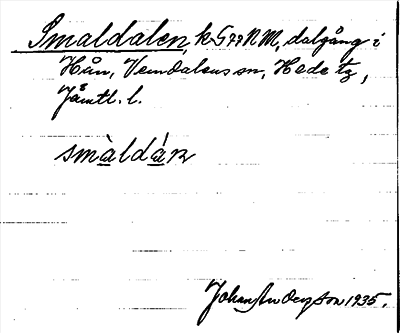 Smaldalen, k 577 NM, dalgång i
Hån, Vemdalens sn, Hede tg,
Jämtl. l.
smàldán
Johan Anderson 1935.